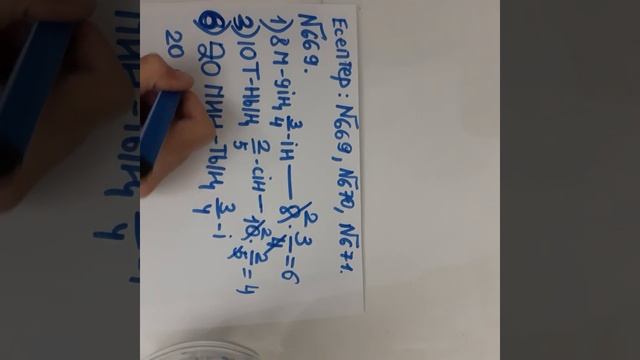 Есептер: №669, №670, №671.
№669.
1) 8 м-дің 3/4-ін — 8 · 3/4 = 6
3) 10 т-ның 2/5-сін — 10 · 2/5 = 4
6) 20 мин-тың 3/4-і
20